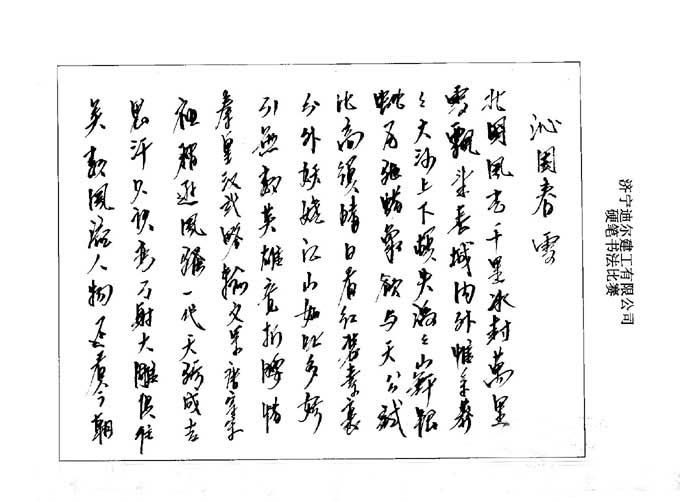 济宁迪尔建工有限公司
硬笔书法比赛
沁园春 雪
北国风光千里冰封萬里
雪飘望长城内外惟余莽
々大河上下顿失滔々山舞银
蛇原驰蜡象欲与天公试
比高须晴日看红装素裹
分外妖娆江山如此多娇
引無数英雄竞折腰惜
秦皇汉武略输文采唐宗宋
祖稍逊风骚一代天骄成吉
思汗只识弯弓射大雕俱往
矣数风流人物还看今朝